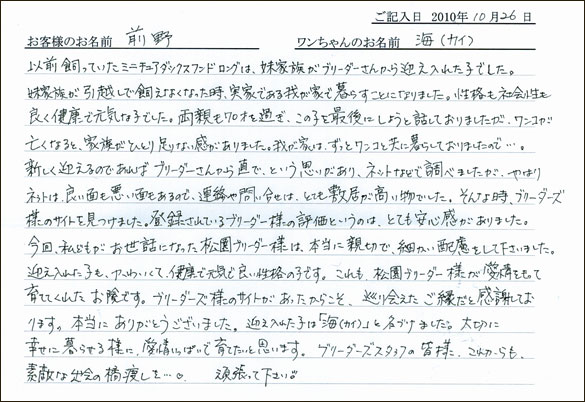 ご記入日 2010年10月26日
お客様のお名前 前野 ワンちゃんのお名前 海(カイ)
以前飼っていたミニチュアダックスフンドロングは、妹家族がブリーダーさんから迎え入れた子でした。
妹家族が引越しで飼えなくなった時、実家である我が家で暮らすことになりました。性格も社会性も
良く健康で元気な子でした。両親も70才を過ぎ、この子を最後にしようと話しておりましたが、ワンコが
亡くなると、家族がひとり足りない感がありました。我が家は、ずっとワンコと共に暮らしておりましたので…。
新しく迎えるのであればブリーダーさんから直で、という思いがあり、ネットなどで調べましたが、やはり
ネットは、良い面も悪い面もあるので、連絡や問い合せは、とても敷居が高い物でした。そんな時、ブリーダーズ
様のサイトを見つけました。登録されているブリーダー様の評価というのは、とても安心感がありました。
今回、私どもがお世話になった松園ブリーダー様は、本当に親切で、細かい配慮をして下さいました。
迎え入れた子も、かわいくて、健康で元気で良い性格の子です。これも、松園ブリーダー様が愛情をもって
育ててくれたお陰です。ブリーダーズ様のサイトがあったからこそ、巡り会えたご縁だと感謝してお
ります。本当にありがとうございました。迎え入れた子は「海(カイ)」と名づけました。大切に
幸せに暮らせる様に、愛情いっぱいで育てたいと思います。ブリーダーズスタッフの皆様に、これからも、
素敵な出会の橋渡しを…。 頑張って下さい。